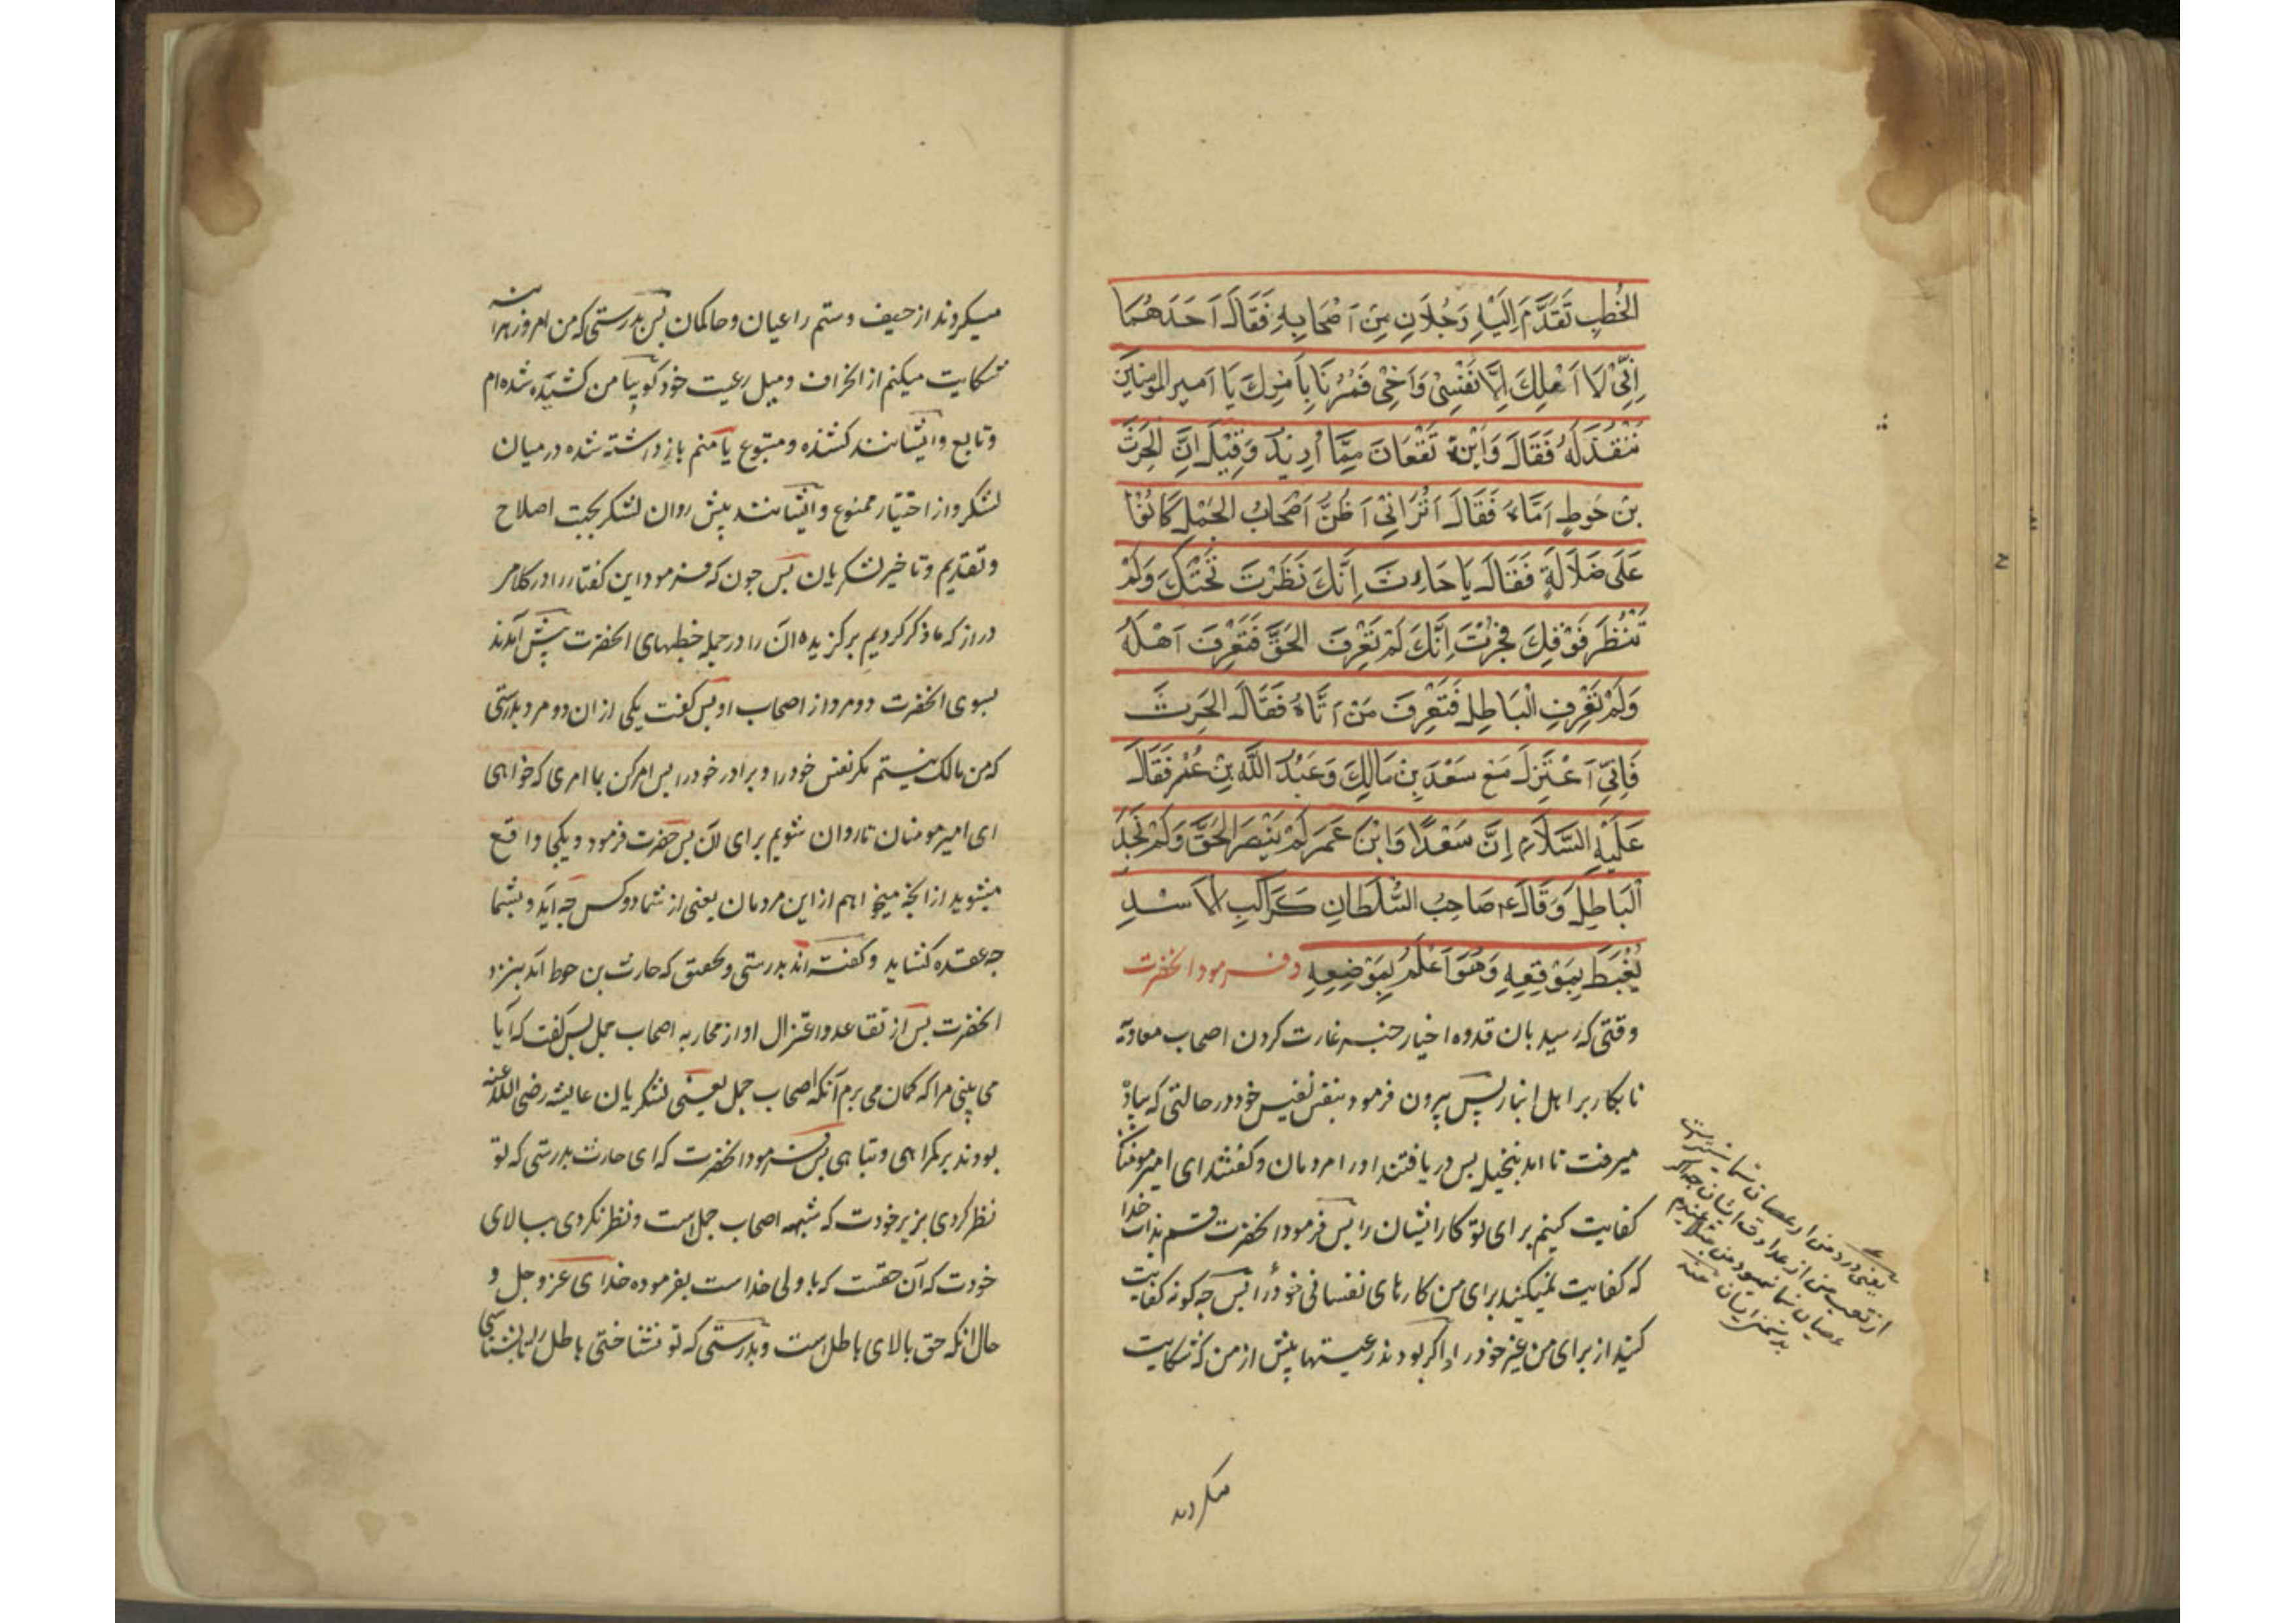 الخُطَبِ تَقَدَّمَ اِلَیْهِ رَجُلَانِ مِنْ اَصْحَابِهِ فَقَالَ اَحَدَهُمَا
اِنِّیْ لَا اَمْلِكُ اِلَّا نَفْسِیْ وَاَخِیْ فَمُرْنَا بِاَمْرِكَ یَا اَمیرالمومنین
نَنْقُدْلَهُ فَقَالَ وَاَیْنَ تَقَعَانَ مِمَّا اُرِیْدُ وَقِیْلَ اِنَّ الحَرِثَ
بْنَ حُوطٍ اَتَاهُ فَقَالَ اَتُرَانِیْ اَظُنُّ اَصْحَابُ الجَمَلِ كَانُوْا
عَلَی ضَلَالَةٍ فَقَالَ یَا حَارِثَ اِنَّكَ نَظَرْتَ تَحْتَكَ وَلَمْ
تَنْظُرَ فَوْقَكَ فَحِزْتَ اِنَّكَ لَمْ تَعْرِفَ الحَقَّ فَتَعْرِفَ اَهْلَهُ
وَلَمْ تَعْرِفِ الْبَاطِلَ فَتَعْرِفَ مَنْ اَتَاهُ فَقَالَ الحَرِثَ
فَاِنِّیْ اَعْتَزِلَ مَعَ سَعْدَ بِنَ مَالِكِ وَعَبْدُ اللّٰهِ بْنِ عُمَر فَقَالَ
عَلَیْهِ السَّلَامُ اِنَّ سَعْدًا وَابْنَ عَمَرَ لَمْ یَنْصُرَ الحَقَّ وَلَمْ یَخْذُ
اَلْبَاطِلَ وَقَالَ ع صَاحِبُ السُّلْطَانِ كَرَاكِبِ الاَسَدِ
یُغْبَطُ بِمَوْقِعِهِ وَهُوَ اَعْلَمُ بِمَوْضِعِهِ وفرمود انحضرت
وقتی که رسید بان قدوه اخیار خبر غارت کردن اصحاب معاویه
نابکار بر اهل انبار پس بیرون فرمود بنفس نفیس خود در حالتی که پیاده
میرفت تا امد بنخیله پس دریافتند او را مردمان وگفتند ای امیرمومنان
کفایت کنیم برای تو کار ایشان را پس فرمود انحضرت قسم بذات خدا
که کفایت نمیکنید برای من کارهای نفسانی خود را پس چه گونه کفایت
کنید از برای من غیر خود را واگر بودند رعیتها پیش از من که شکایت
یعنی درد من از عصیان شما بیشتر است
از تعب من از عداوت ایشان چه اگر
عصیان شما نمیبود من مبتلا نمیشدم
بدشمن ایشان منه
میکردند
میکردند از حیف وستم راعیان وحاکمان پس بدرستی که من امروز هراینه
شکایت میکنم از انحراف ومیل رعیت خود کویا من کشیده شده ام
وتابع وایشانند کشنده ومتبوع یا منم بازداشته شده درمیان
لشکر واز اختیار ممنوع وایشانند پیش روان لشکر بجهت اصلاح
وتقدیم وتاخیر لشکریان پس چون که فرمود این گفتار را در کلام
دراز که ما ذکر کردیم برگزیده ان را در جمله خطبهای انحضرت پیش آمدند
بسوی انحضرت دو مرد از اصحاب او پس گفت یکی ازان دو مرد بدرستی
که من مالک نیستم مگر نفس خود را وبرادر خود را پس امر کن باامری که خواهی
ای امیر مومنان تاروان شویم برای آن پس حضرت فرمود ویکجا واقع
میشوید از انچه میخواهم از این مردمان یعنی از شما دو کس چه آید وبشما
چه عقده کشاید وگفته اند بدرستی وتحقیق که حارث بن حوط آمد بنزد
انحضرت پس از تقاعد واعتزال او از محاربه اصحاب جمل پس گفت که آیا
می بینی مرا که گمان می برم آنکه اصحاب جمل یعنی لشکریان عایشه رضی الله عنه
بودند بر گمراهی وتباهی پس فرمود انحضرت که ای حارث بدرستی که تو
نظر کردی بزیر خودت که شبهه اصحاب جمل است ونظر نکردی ببالای
خودت که آن حقست که با ولی خداست بفرموده خدای عزوجل و
حال انکه حق بالای باطل است وبدرستی که تو نشناختی باطل را تا بشناسی